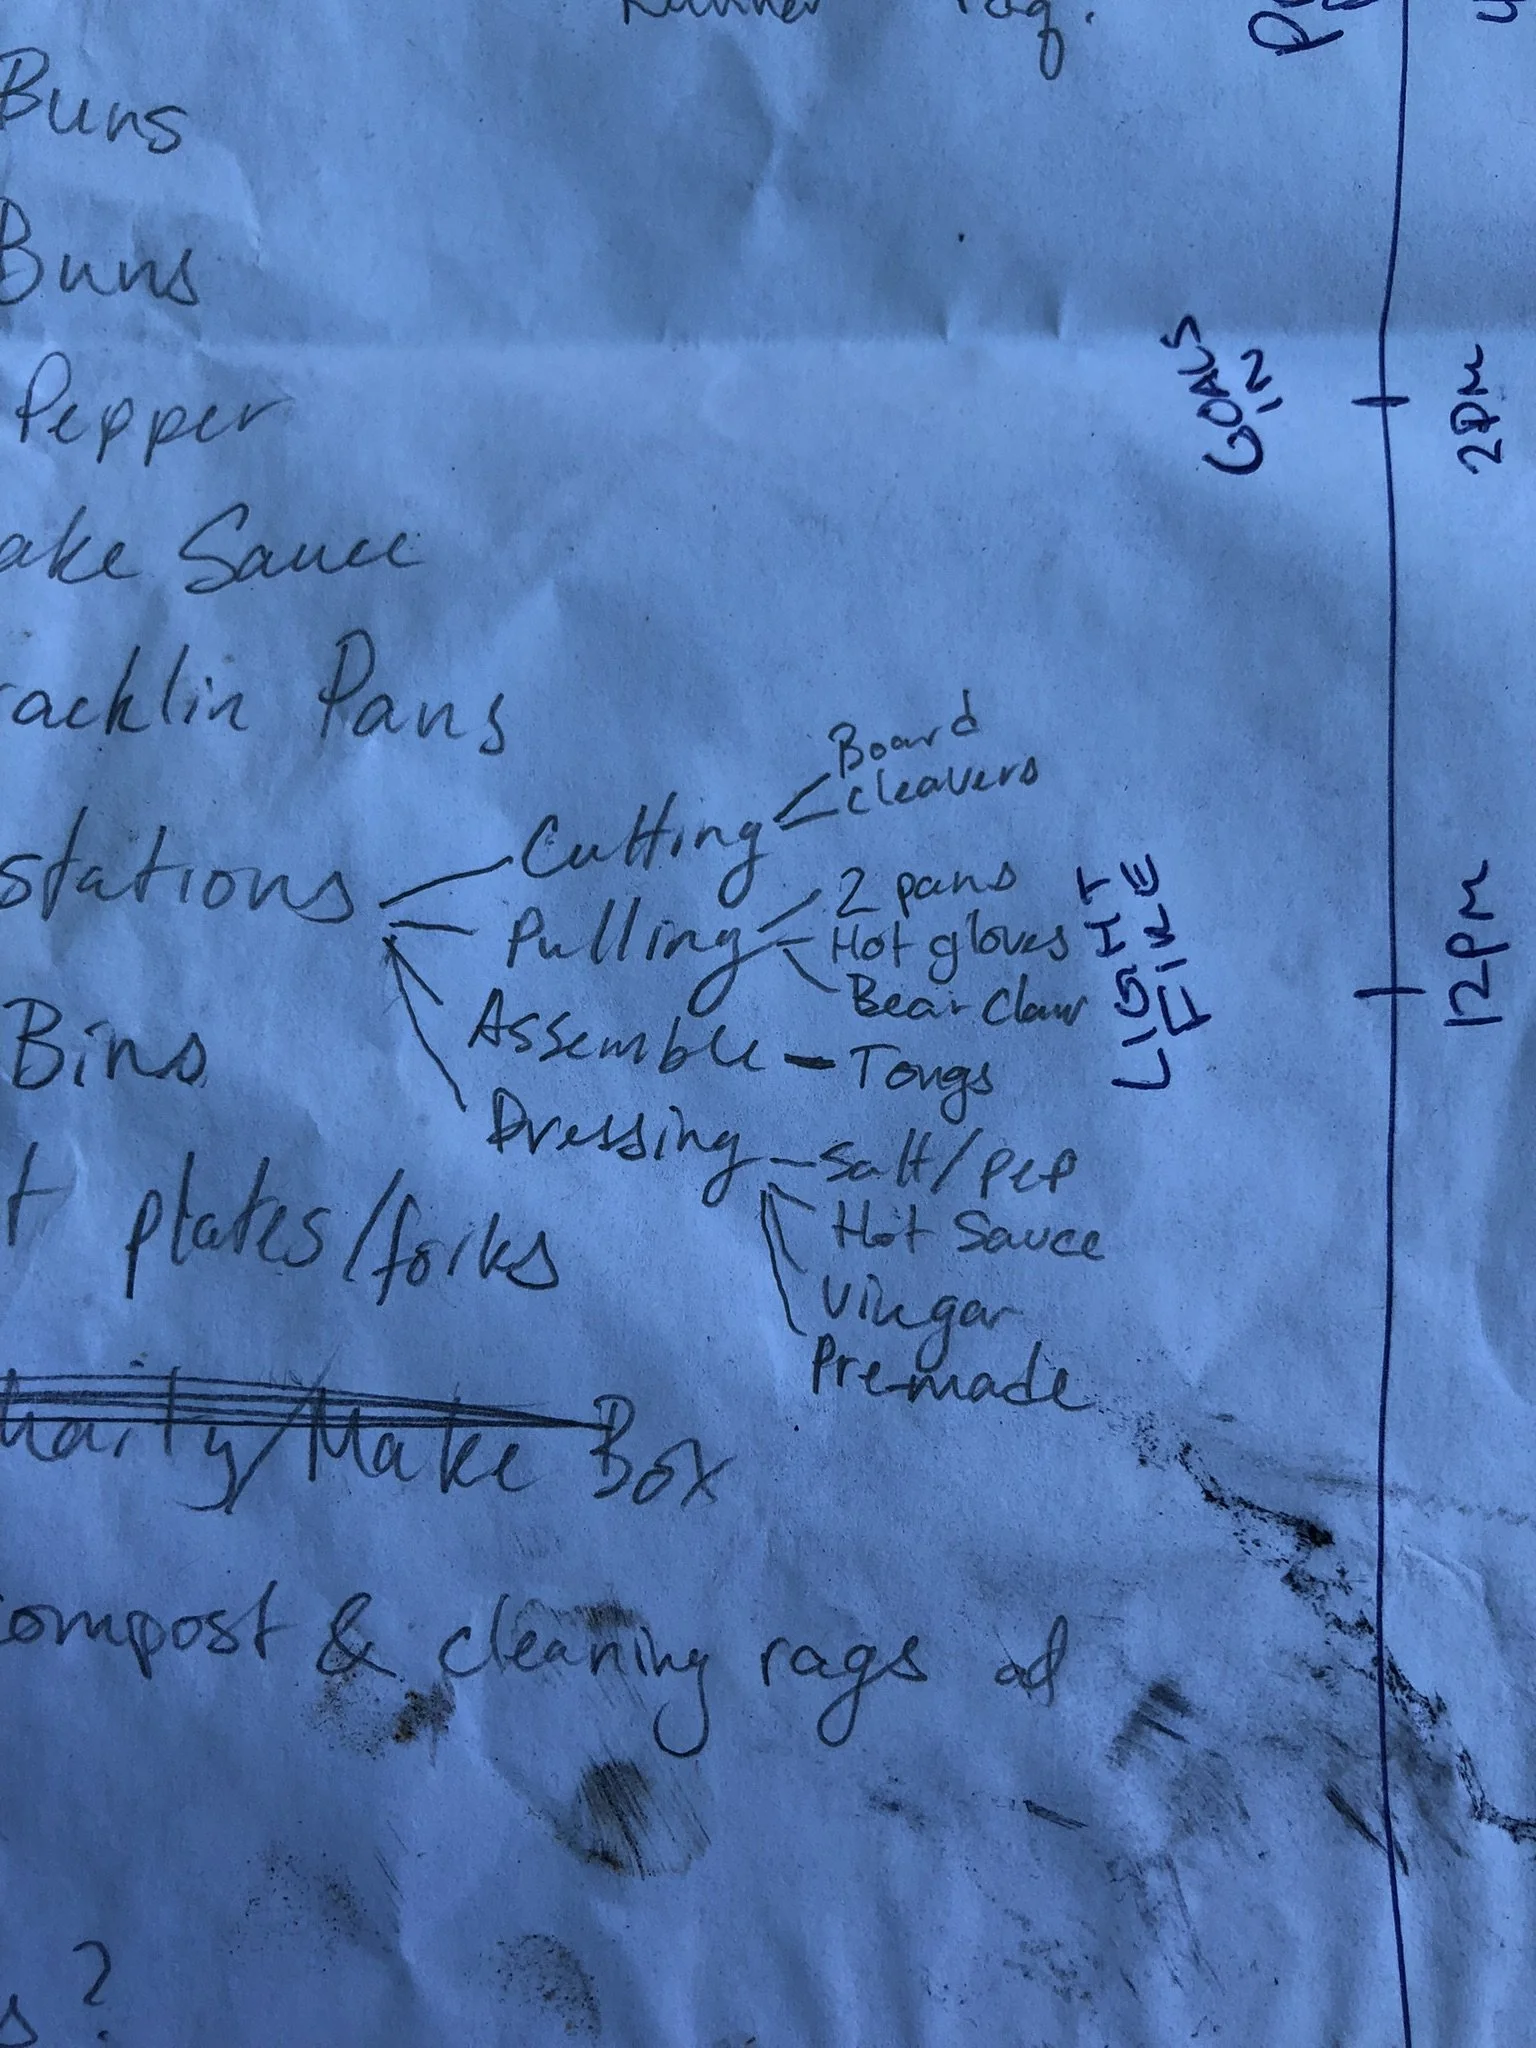 Buns
Buns
Pepper
ake Sauce
racklin Pans
stations
Cutting
Board
cleavers
Pulling
2 pans
Hot gloves
Bear Claw
Assemble - Tongs
Dressing
Salt/pep
Hot Sauce
Vinegar
Pre-made
Bins
t plates/forks
harity/Make Box
compost & cleaning rags
s?
GOALS
IN
2pm
LIGHT
FIRE
12pm